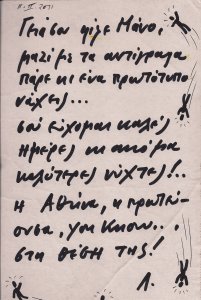 8-II 2011
Γειά σου φίλε Μάνο,
μαζί με τα αντίγραφα
πάρε κι ένα πρωτότυπο
νάχεις...
σού εύχομαι καλές
ημέρες κι ακόμα
καλύτερες νύχτες!..
Η Αθήνα, η πρωτεύ-
ουσα, you know...
στη θέση της!
Λ.